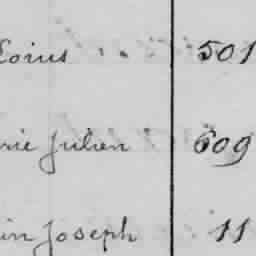 Eoris 501
rie Julien 609
in Joseph 11